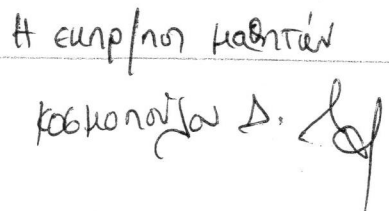 Η εκπρ/πος μαθητών
Κοσμοπούλου Δ.